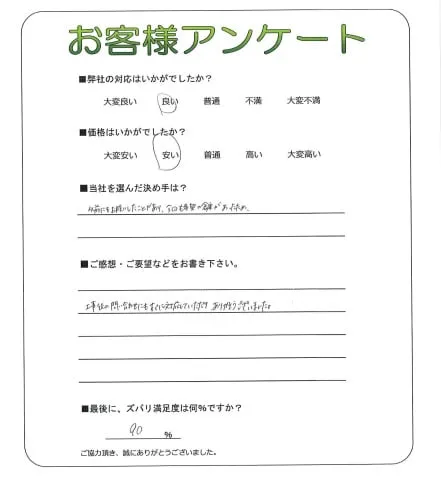 お客様アンケート
■弊社の対応はいかがでしたか？
大変良い 良い 普通 不満 大変不満
■価格はいかがでしたか？
大変安い 安い 普通 高い 大変高い
■当社を選んだ決め手は？
以前にもお願いしたことがあり、今回も希望の金額があったため、
■ご感想・ご要望などをお書き下さい。
工事後の問い合わせにもすぐに対応していただけ ありがとうございました。
■最後に、ズバリ満足度は何%ですか？
90 %
ご協力頂き、誠にありがとうございました。